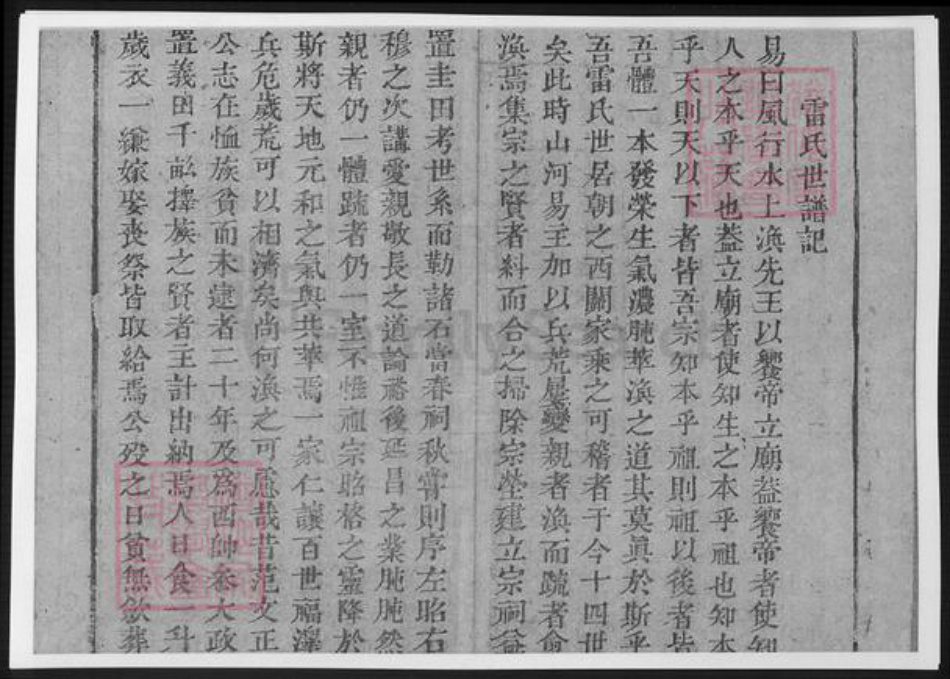 雷氏世譜記
易曰風行水上渙先王以饗帝立廟葢饗帝者使知
人之本乎天也葢立廟者使知生之本乎祖也知本
乎天則天以下者皆吾宗知本乎祖則祖以後者皆
吾體一本發榮生氣濃肫萃渙之道其莫眞於斯乎
吾雷氏世居朝之西關家乘之可稽者于今十四世
矣此時山河易主加以兵荒屢變親者渙而疏者愈
渙焉集宗之賢者糾而合之掃除宗塋建立宗祠益
置圭田考世系而勒諸石當春祠秋嘗則序左昭右
穆之次講愛親敬長之道論裕後延昌之業肫肫然
親者仍一體踈者仍一室不惟祖宗昭格之靈降於
斯將天地元和之氣與共萃焉一家仁讓百世福澤
兵危歲荒可以相濟矣尚何渙之可慮哉昔范文正
公志在恤族貧而未逮者二十年及爲西帥叅大政
置義田千畝擇族之賢者主計出納焉人日食一升
歲衣一縑嫁娶丧祭皆取給焉公歿之日貧無歛葬